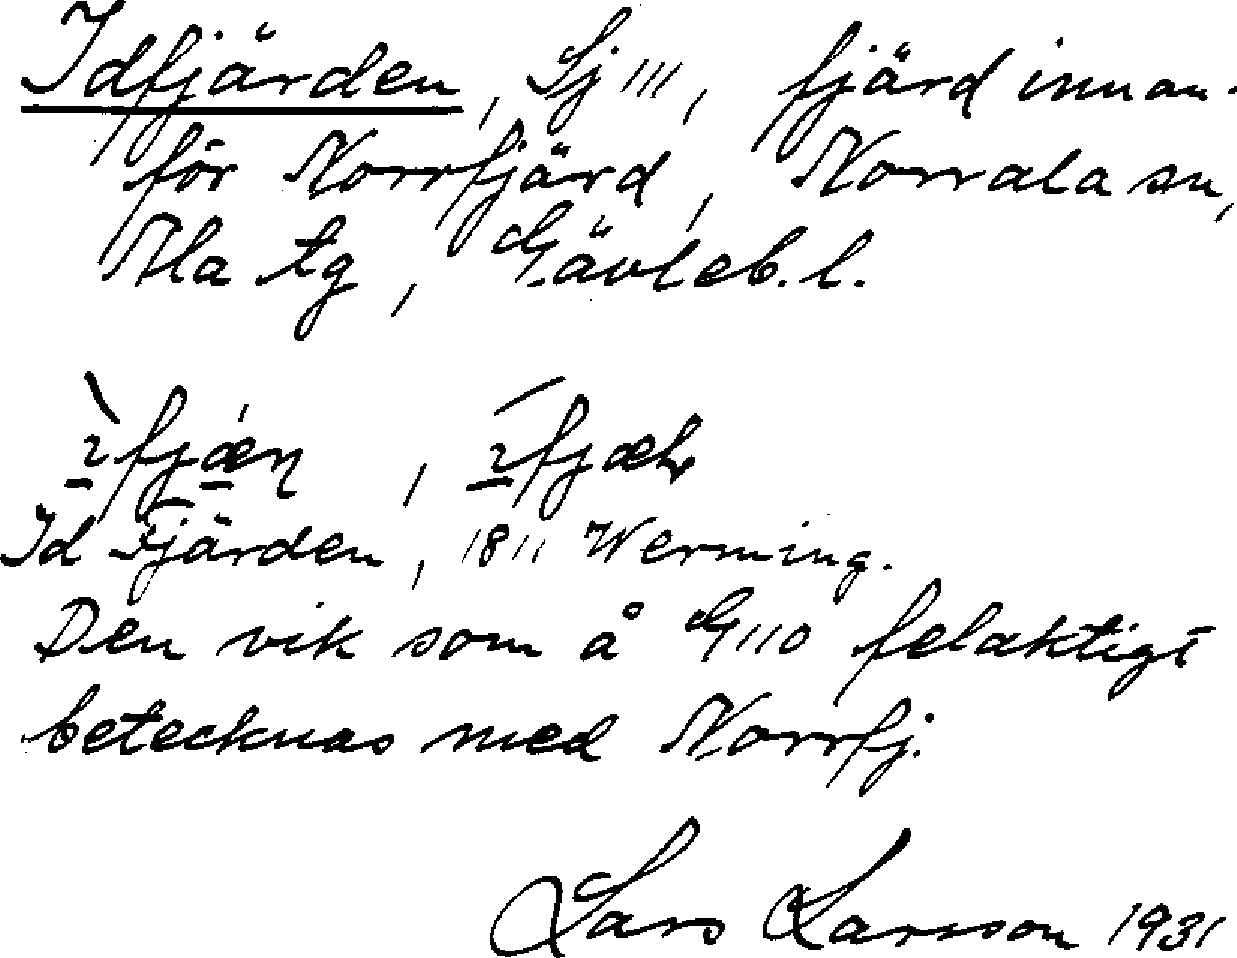 Idfjärden, Sj 111, fjärd innan-
för Norrfjärd, Norrala sn,
Ala tg, Gävleb. l.
Id Fjärden, 1811 Werming.
Den vik som å G110 felaktigt
betecknas med Norrfj.
Lars Larsson 1931